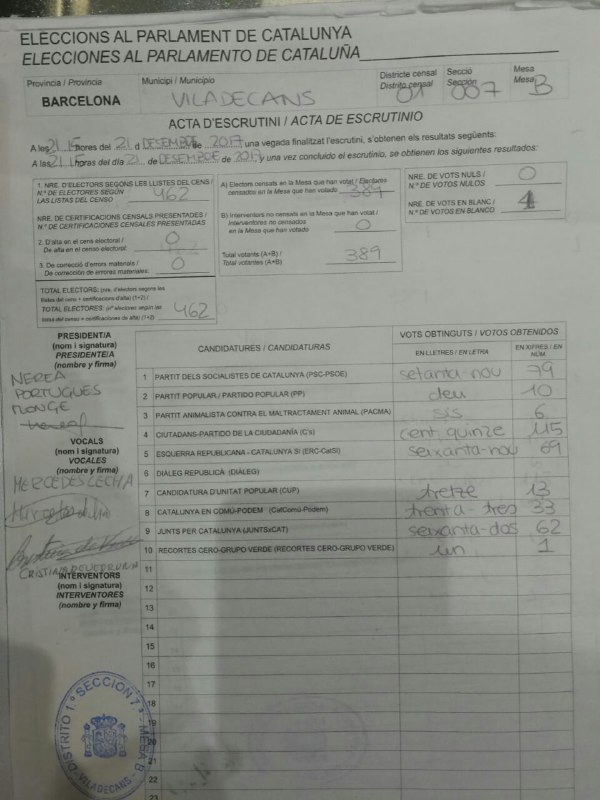 ELECCIONS AL PARLAMENT DE CATALUNYA
ELECCIONES AL PARLAMENTO DE CATALUÑA
Provincia / Provincia
BARCELONA
Municipi / Municipio
VILADECANS
Districte censal
Distrito censal
01
Secció
Sección
007
Mesa
Mesa
B
ACTA D'ESCRUTINI / ACTA DE ESCRUTINIO
A les 21.15 hores del 21 d DESEMBRE de 2017 una vegada finalitzat l'escrutini, s'obtenen els resultats següents:
A las 21.15 horas del día 21 de DESEMBRE de 2017 y una vez concluido el escrutinio, se obtienen los siguientes resultados:
1. NRE. D'ELECTORS SEGONS LES LLISTES DEL CENS /
N.º DE ELECTORES SEGÚN
LAS LISTAS DEL CENSO
462
NRE. DE CERTIFICACIONS CENSALS PRESENTADES /
N.º DE CERTIFICACIONES CENSALES PRESENTADAS
2. D'alta en el cens electoral /
De alta en el censo electoral: 0
3. De correcció d'errors materials /
De corrección de errores materiales: 0
TOTAL ELECTORS: (nre. d'electors segons les
llistes del cens + certificacions d'alta) (1+2) /
TOTAL ELECTORES: (nº electores según las
listas del censo + certificaciones de alta) (1+2) 462
A) Electors censats en la Mesa que han votat / Electores
censados en la Mesa que han votado 389
B) Interventors no censats en la Mesa que han votat /
Interventores no censados
en la Mesa que han votado 0
Total votants (A+B) /
Total votantes (A+B) 389
NRE. DE VOTS NULS /
N.º DE VOTOS NULOS 0
NRE. DE VOTS EN BLANC /
N.º DE VOTOS EN BLANCO 1
PRESIDENT/A
(nom i signatura)
PRESIDENTE/A
(nombre y firma)
NEREA
PORTUGUES
MONGE
VOCALS
(nom i signatura)
VOCALES
(nombre y firma)
MERCEDES LECHA
INTERVENTORS
(nom i signatura)
INTERVENTORES
(nombre y firma)
CANDIDATURES / CANDIDATURAS
VOTS OBTINGUTS / VOTOS OBTENIDOS
EN LLETRES / EN LETRA
EN XIFRES / EN NÚM.
1 PARTIT DELS SOCIALISTES DE CATALUNYA (PSC-PSOE) setanta-nou 79
2 PARTIT POPULAR / PARTIDO POPULAR (PP) deu 10
3 PARTIT ANIMALISTA CONTRA EL MALTRACTAMENT ANIMAL (PACMA) sis 6
4 CIUTADANS-PARTIDO DE LA CIUDADANÍA (C's) cent quinze 115
5 ESQUERRA REPUBLICANA - CATALUNYA SÍ (ERC-CatSí) seixanta-nou 69
6 DIÀLEG REPUBLICÀ (DIÀLEG)
7 CANDIDATURA D'UNITAT POPULAR (CUP) tretze 13
8 CATALUNYA EN COMÚ-PODEM (CatComú-Podem) trenta-tres 33
9 JUNTS PER CATALUNYA (JUNTSxCAT) seixanta-dos 62
10 RECORTES CERO-GRUPO VERDE (RECORTES CERO-GRUPO VERDE) un 1
11
12
13
14
15
16
17
18
19
20
21
22
23
DISTRITO 1º SECCION 7ª MESA B
VILADECANS